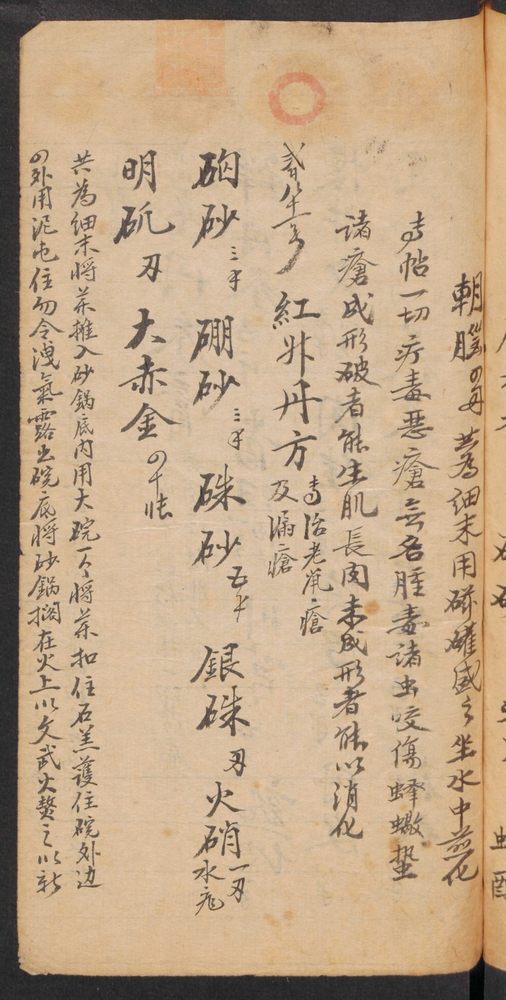 朝腦 共為細末用磁罐盛之坐水中蒸化
専帖一切疔毒惡瘡無名腫毒諸虫咬傷蜂蠍蜇
諸瘡成形破者能生肌長肉未成形者能以消化
紅升丹方 専治老鼠瘡及漏瘡
硇砂三 硼砂三 硃砂五 銀硃 火硝一 水
明矾 大赤金 千张
共為細末將药推入砂鍋底內用大碗一个將药扣住石羔護住碗外边
外用泥屯住勿令洩氣露出碗底將砂鍋搁在火上以文武火熬之以新